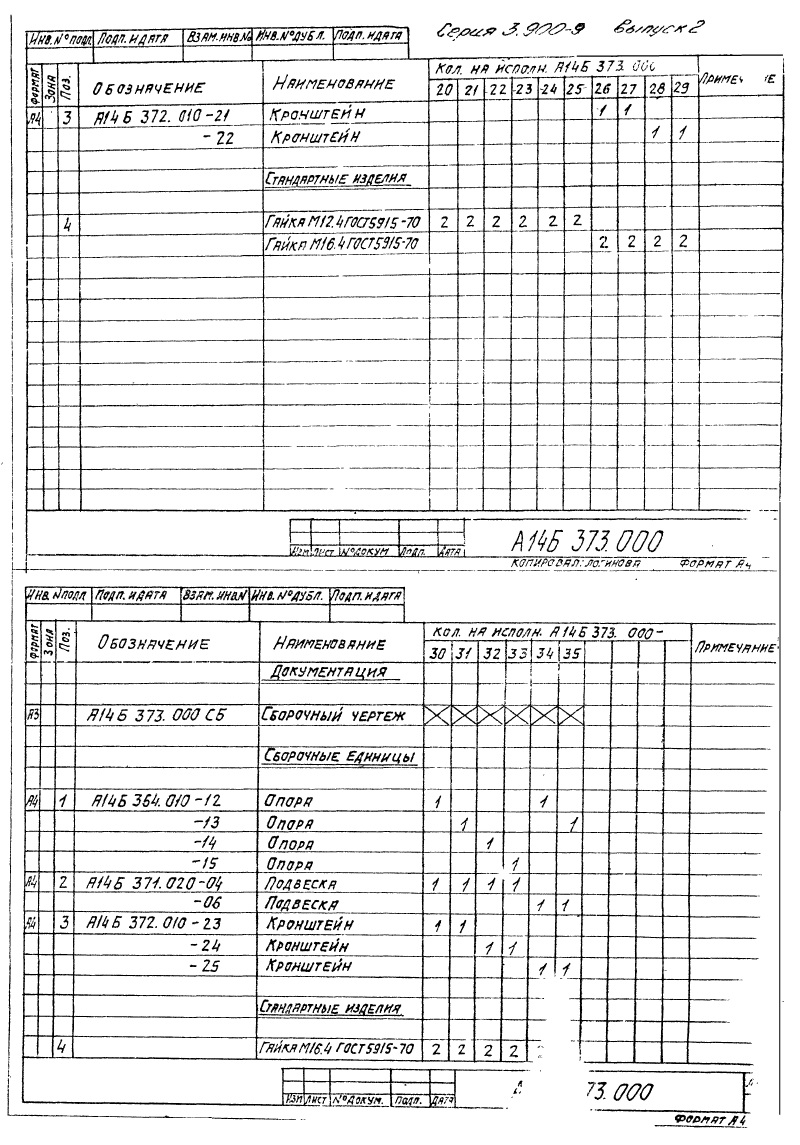 Серия 3.900-9 Выпуск 2
Инв. № подл Подп. и дата Взам. инв. № Инв. № дубл. Подп. и дата
Формат Зона Поз. Обозначение Наименование Кол. на исполн. А14Б 373. 000
20 21 22 23 24 25 26 27 28 29
А4 3 А14Б 372. 010 -21 Кронштейн 1 1
-22 Кронштейн 1 1
Стандартные изделия
4 Гайка М12.4 ГОСТ5915-70 2 2 2 2 2 2
Гайка М16.4 ГОСТ5915-70 2 2 2 2
Изм Лист № докум Подп. Дата А14Б 373.000
Копировал: Логинова Формат А4
Инв. № подл Подп. и дата Взам. инв. № Инв. № дубл. Подп. и дата
Формат Зона Поз. Обозначение Наименование Кол. на исполн. А14Б 373. 000- Примечание
30 31 32 33 34 35
Документация
А3 А14Б 373. 000 СБ Сборочный чертеж
Сборочные единицы
А4 1 А14Б 364. 010 -12 Опора 1 1
-13 Опора 1 1
-14 Опора 1
-15 Опора 1
А4 2 А14Б 371. 020 -04 Подвеска 1 1 1 1
-06 Подвеска 1 1
А4 3 А14Б 372. 010 -23 Кронштейн 1 1
-24 Кронштейн 1 1
-25 Кронштейн 1 1
Стандартные изделия
4 Гайка М16.4 ГОСТ5915-70 2 2 2 2
Изм Лист № докум. Подп. Дата 73.000
Формат А4